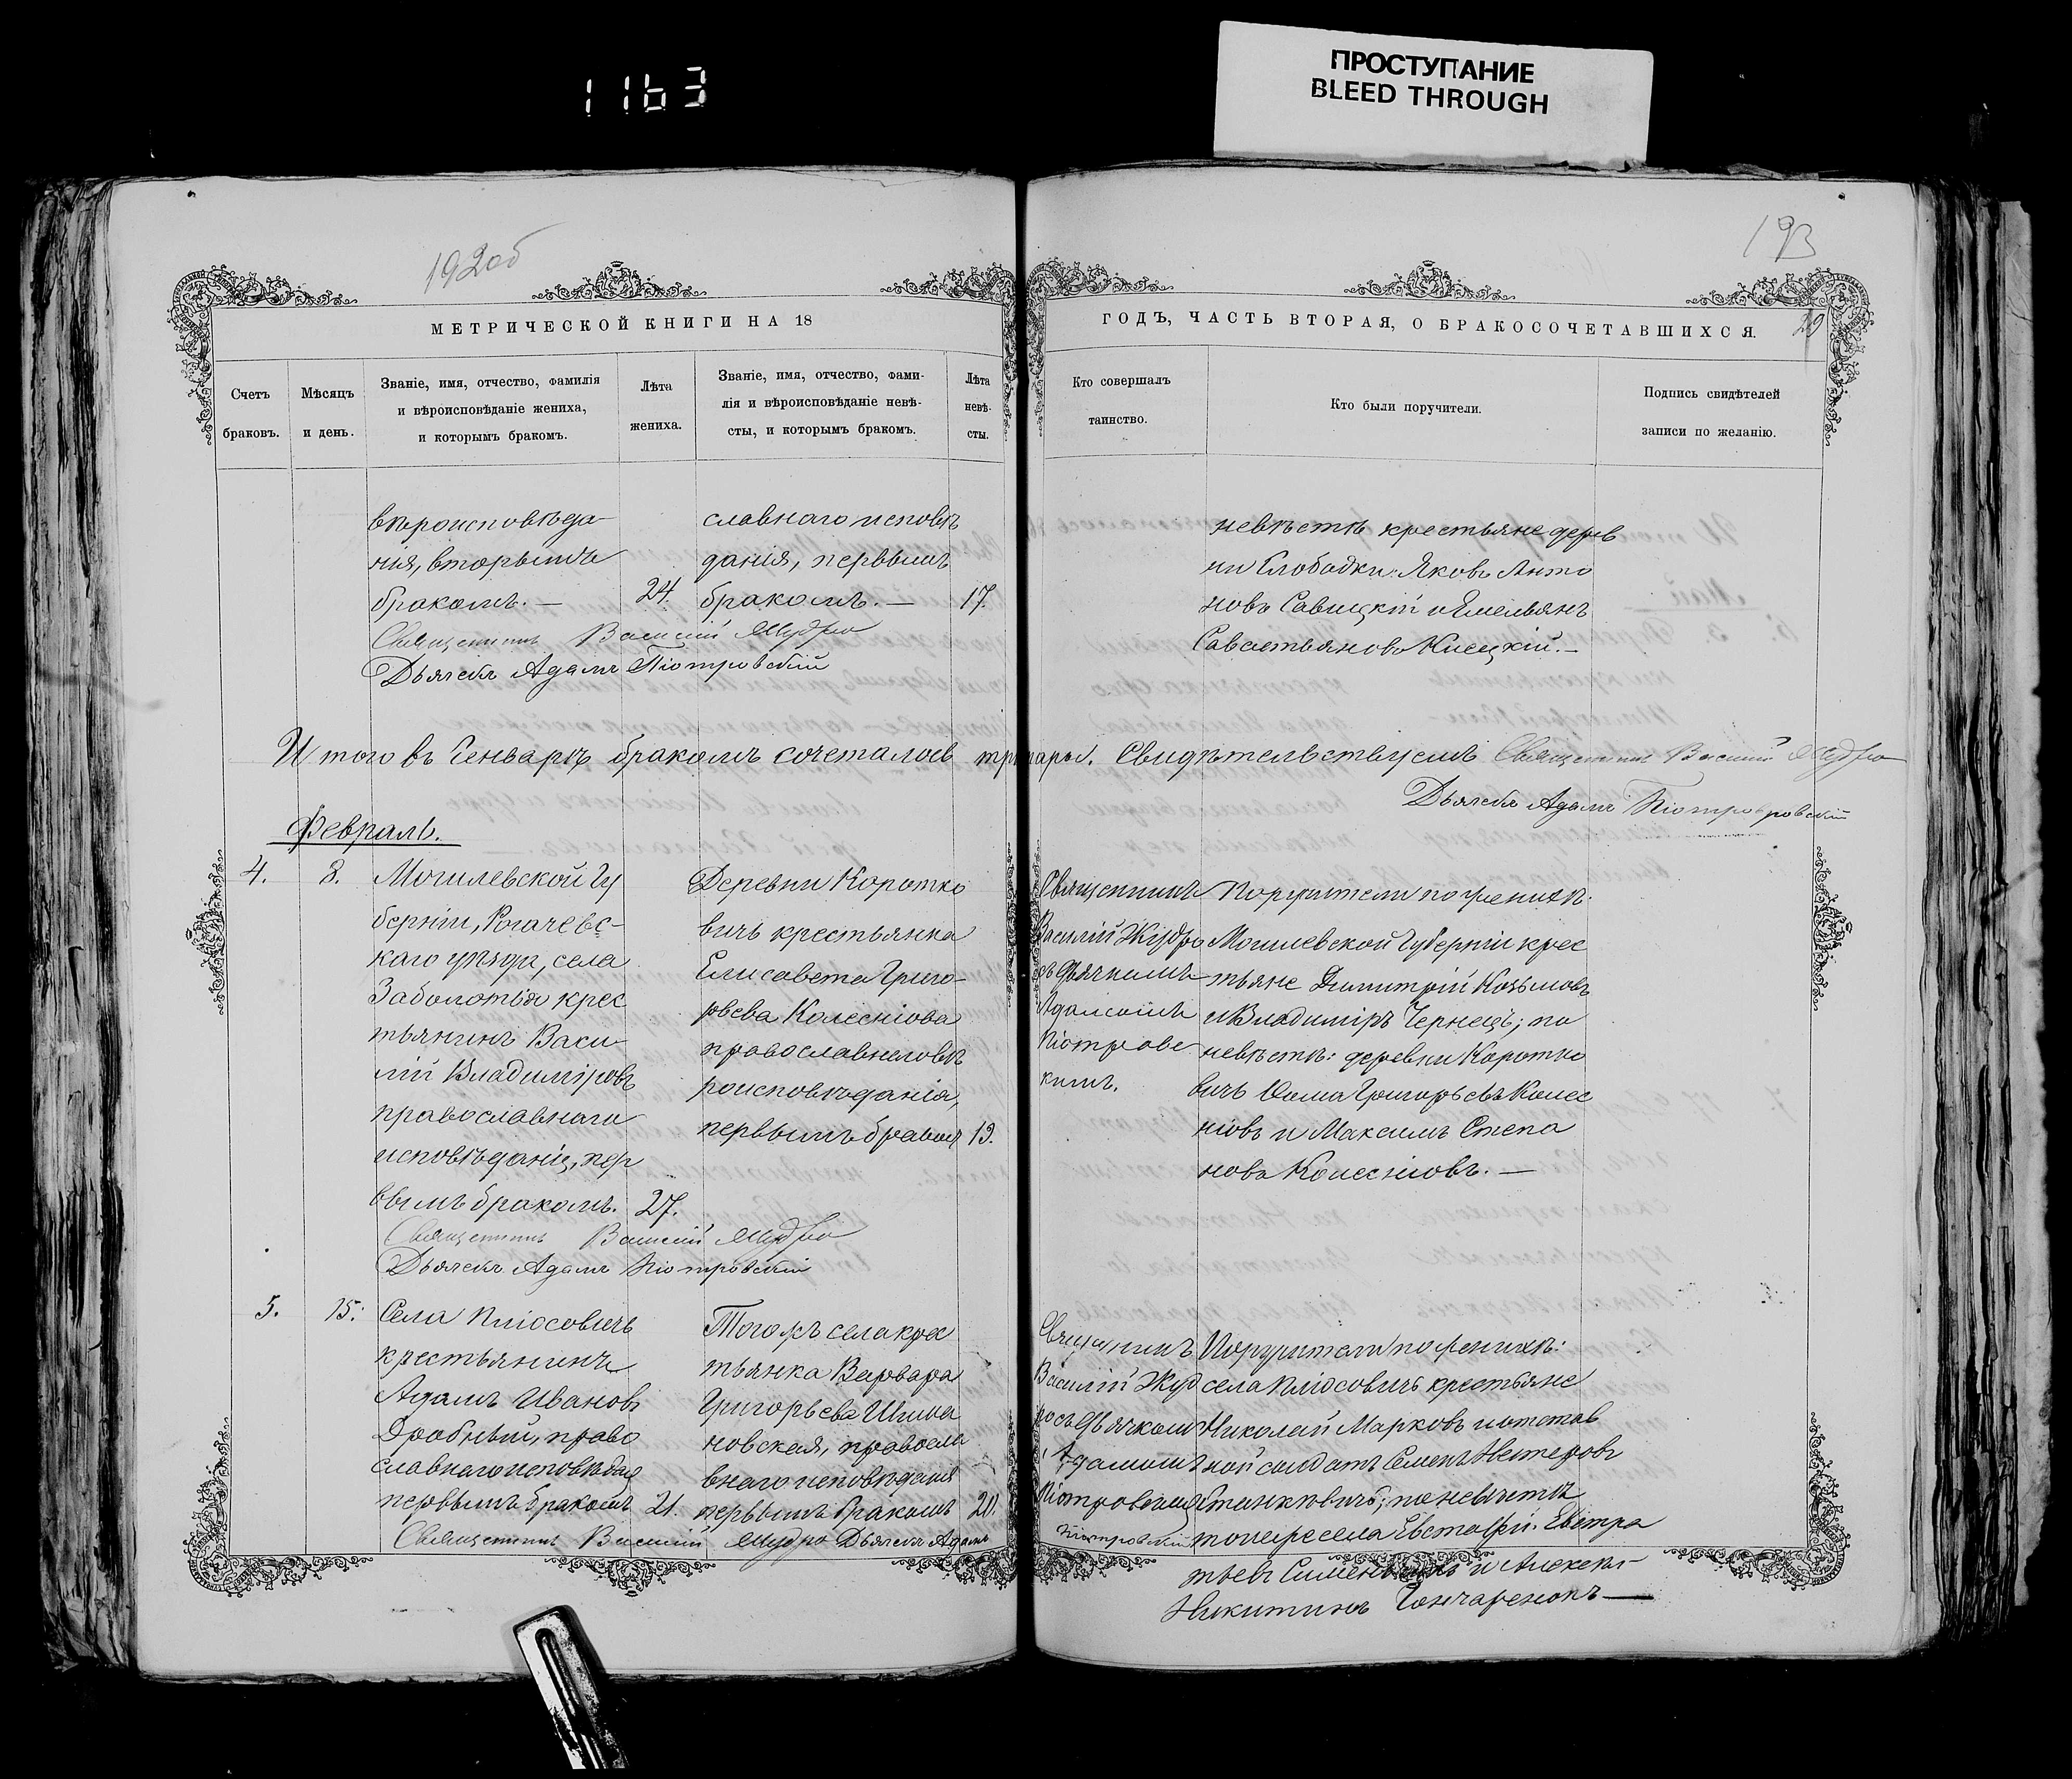 1163
ПРОСТУПАНИЕ
BLEED THROUGH
192об
193
МЕТРИЧЕСКОЙ КНИГИ НА 18
ГОДЪ, ЧАСТЬ ВТОРАЯ, О БРАКОСОЧЕТАВШИХСЯ.
29
Счетъ
браковъ.
Мѣсяцъ
и день.
Званіе, имя, отчество, фамилія
и вѣроисповѣданіе жениха,
и которымъ бракомъ.
Лѣта
жениха.
Званіе, имя, отчество, фами-
лія и вѣроисповѣданіе невѣ-
сты, и которымъ бракомъ.
Лѣта
невѣ-
сты.
Кто совершалъ
таинство.
Кто были поручители.
Подпись свидѣтелей
записи по желанію.
вѣроисповѣда-
нія, вторымъ
бракомъ. —
24.
славнаго исповѣ
данія, первымъ
бракомъ. —
17.
невѣстѣ крестьяне дерев
ни Слободки: Яковъ Анто
новъ Савицкій и Емельянъ
Савастьяновъ Кисецкій. —
Священникъ Василій Жудро
Дьячекъ Адамъ Піотровскій
Итого въ Генварѣ бракомъ сочеталось три пары. Свидѣтельствуемъ Священникъ Василій Жудро
Дьячекъ Адамъ Піотровскій
Февраль.
4.
8.
Могилевской Гу
берніи, Рогачевс-
каго уѣзда, села
Заболотья крес
тьянинъ Васи
лій Владиміровъ
православнаго
исповѣданія, пер
вымъ бракомъ.
27.
Деревни Коротко
вичъ крестьянка
Елисавета Григо-
рьева Колеснгова
православнаго вѣ
роисповѣданія,
первымъ бракомъ
19.
Священникъ
Василій Жудро
съ дьячкомъ
Адамомъ
Піотровс
кимъ.
Поручители по женихѣ:
Могилевской Губерніи крес
тьяне Димитрій Козьмовъ
и Владиміръ Чернецъ; по
невѣстѣ: деревни Коротко
вичъ Ѳома Григорьевъ Колес
ніовъ и Максимъ Степа
новъ Колесніовъ. —
Священникъ Василій Жудро
Дьячекъ Адамъ Піотровскій
5.
15.
Села Плюсовичъ
крестьянинъ
Адамъ Ивановъ
Дробный, право
славнаго исповѣдая
первымъ бракомъ
21.
Того жъ села крес
тьянка Варвара
Григорьева Шима
новская, правосла
внаго исповѣданія
первымъ бракомъ
20.
Василій Жуд
ро съ дьячкомъ
Адамомъ
Поручители по женихѣ:
села Плюсовичъ крестьяне
Николай Марковъ и отстав
ной солдатъ Семенъ Нестеровъ
Станкевичъ; по невѣстѣ
того же села Евстафій Евстра
и Алексѣй
Никитинъ Гончаренокъ —
Священникъ Василій Жудро Дьячекъ Адамъ
Піотровскій